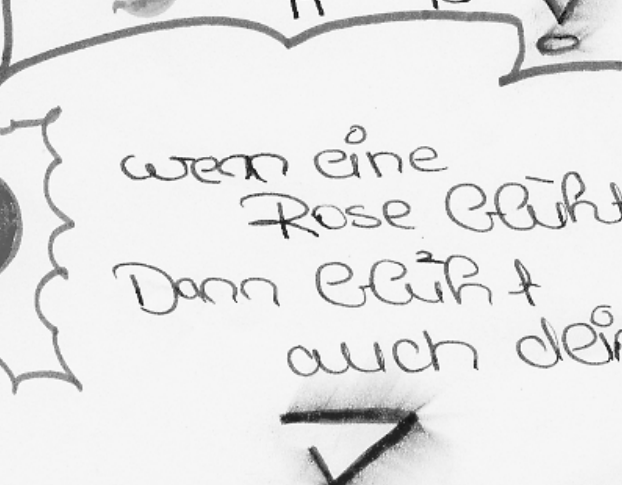 wenn eine
Rose blüht
Dann blüht
auch dein